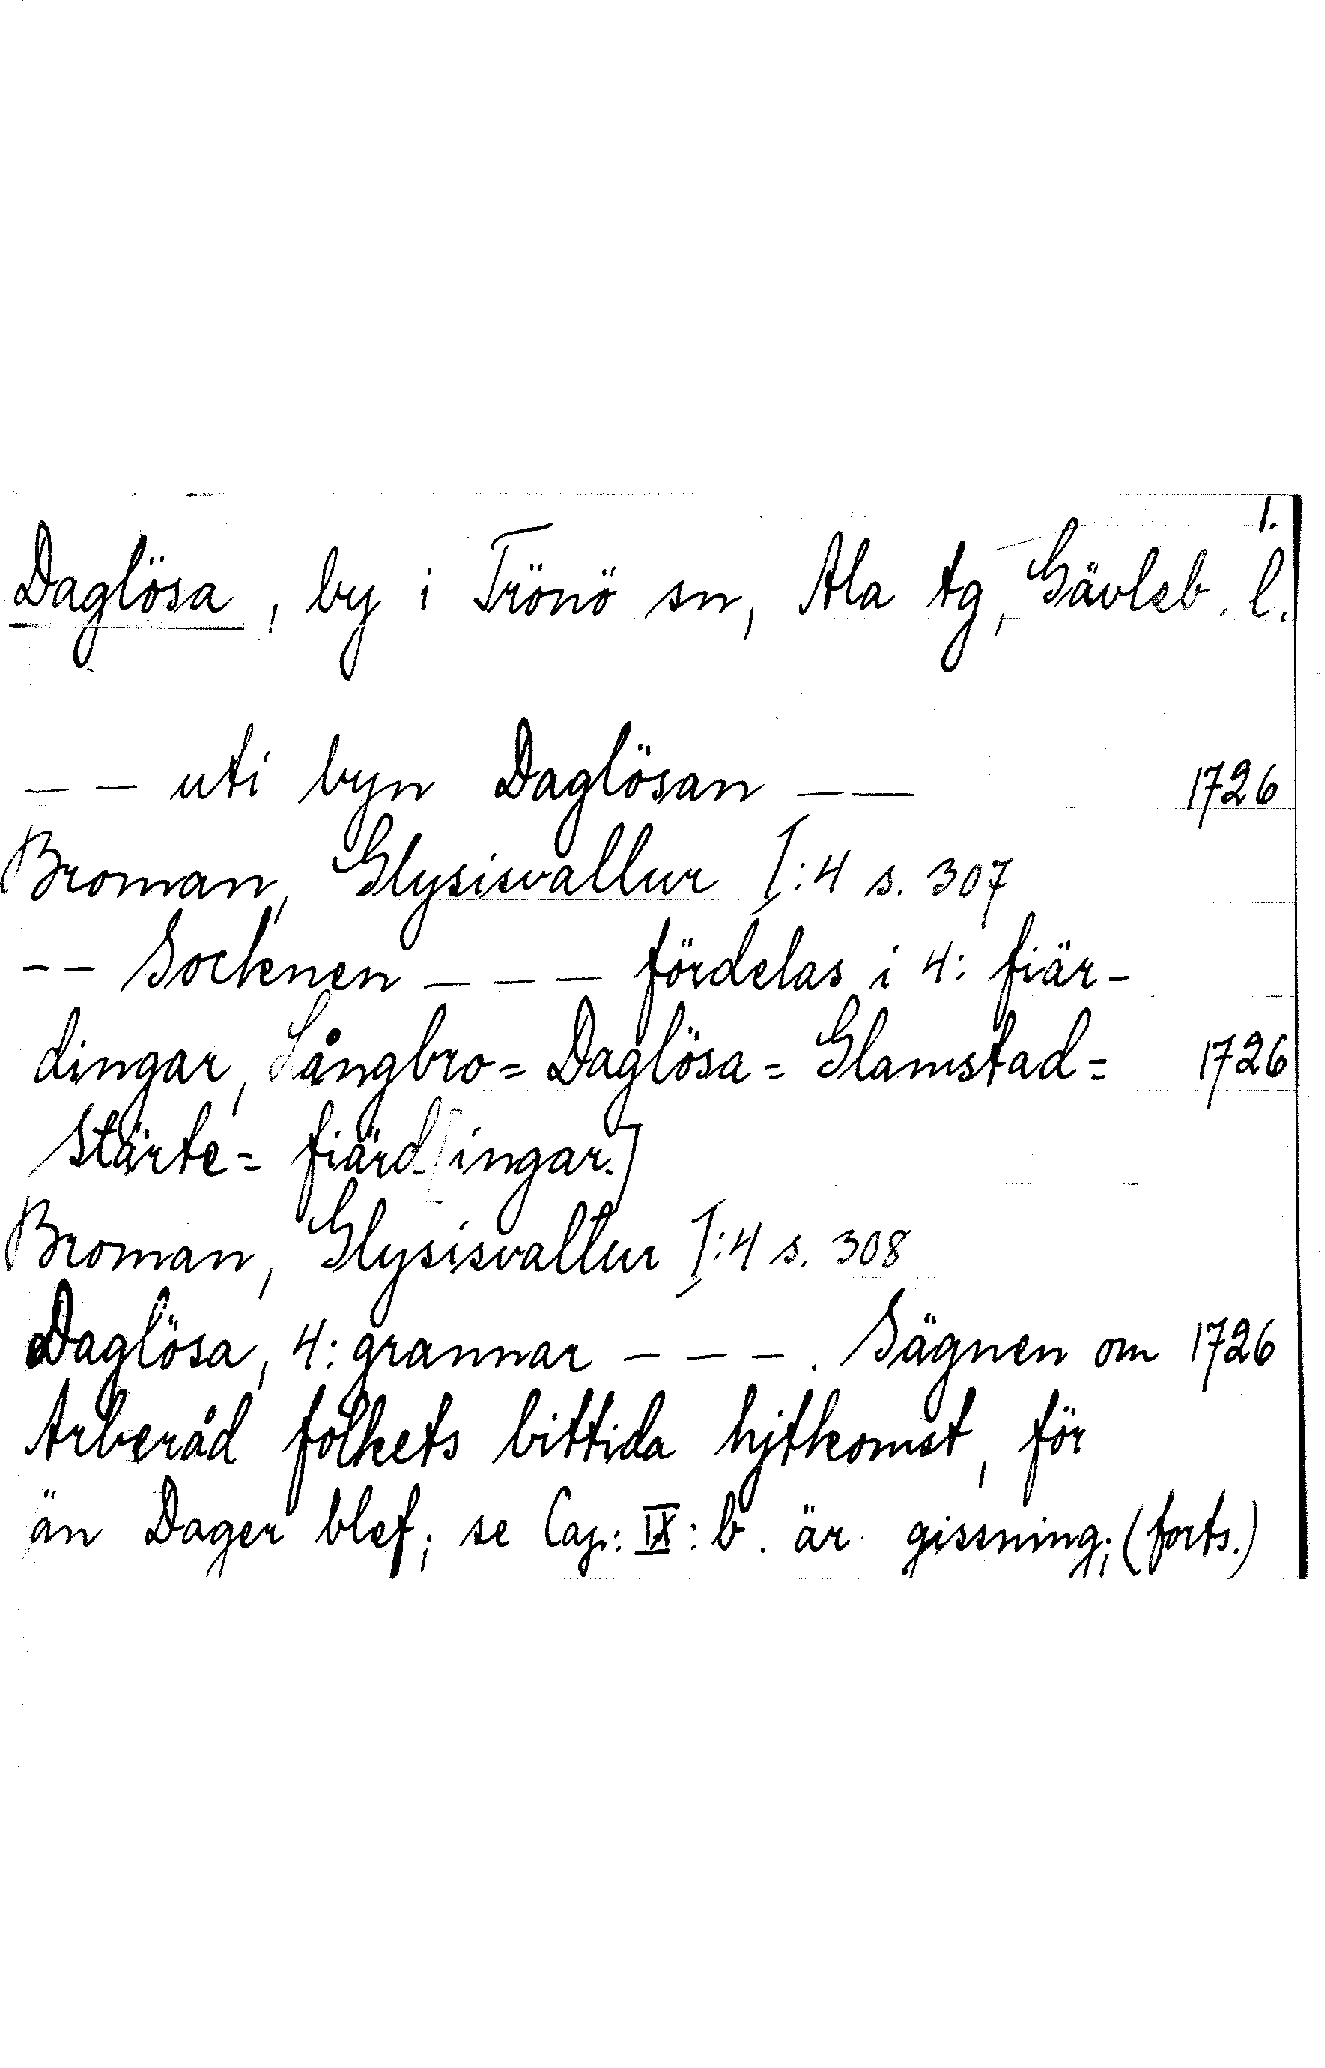 1.
Daglösa, by i Trönö sn, Ala tg, Gävleb. l.
— — uti byn Daglösan — — 1726
Broman, Glysisvallur I:4 s. 307
-- Socknen — — — fördelas i 4: fiär-
dingar, Långbro= Daglösa= Glamstad= 1726
Stärte= fiärd[ingar.]
Broman, Glysisvallur I:4 s. 308
Daglösa, 4: grannar — — —. Sägnen om 1726
Arberåd folkets bittida hitkomst, för
än Dager blef; se Cap: IX: b. är gissning; (forts.)